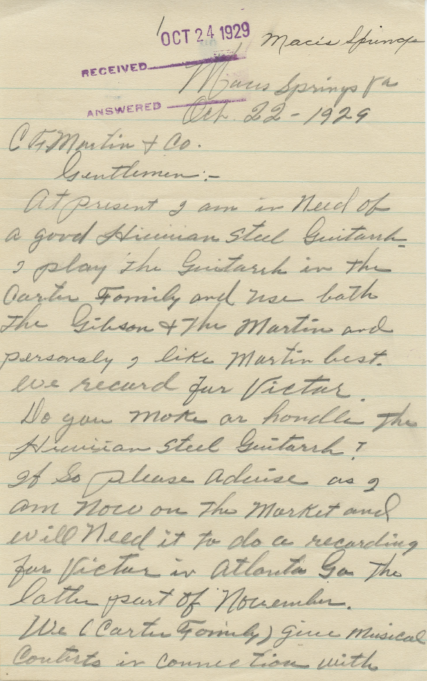 OCT 24 1929
Macis Springs
RECEIVED
Macis Springs Va
ANSWERED
Oct. 22 - 1929
C F. Martin & Co.
Gentlemen:-
At present I am in Need of
a good Hiwiian Steel Guitarrh-
I play The Guitarrh in the
Carter Family and use both
The Gibson & The Martin and
personaly I like Martin best.
We record for Victor.
Do you make or handle The
Hiwiian Steel Guitarrh?
If So please advise as I
am Now on The Market and
will Need it to do a recording
for Victor in Atlanta Ga The
latter part of November.
We (Carter Family) give musical
Conterts in connection with